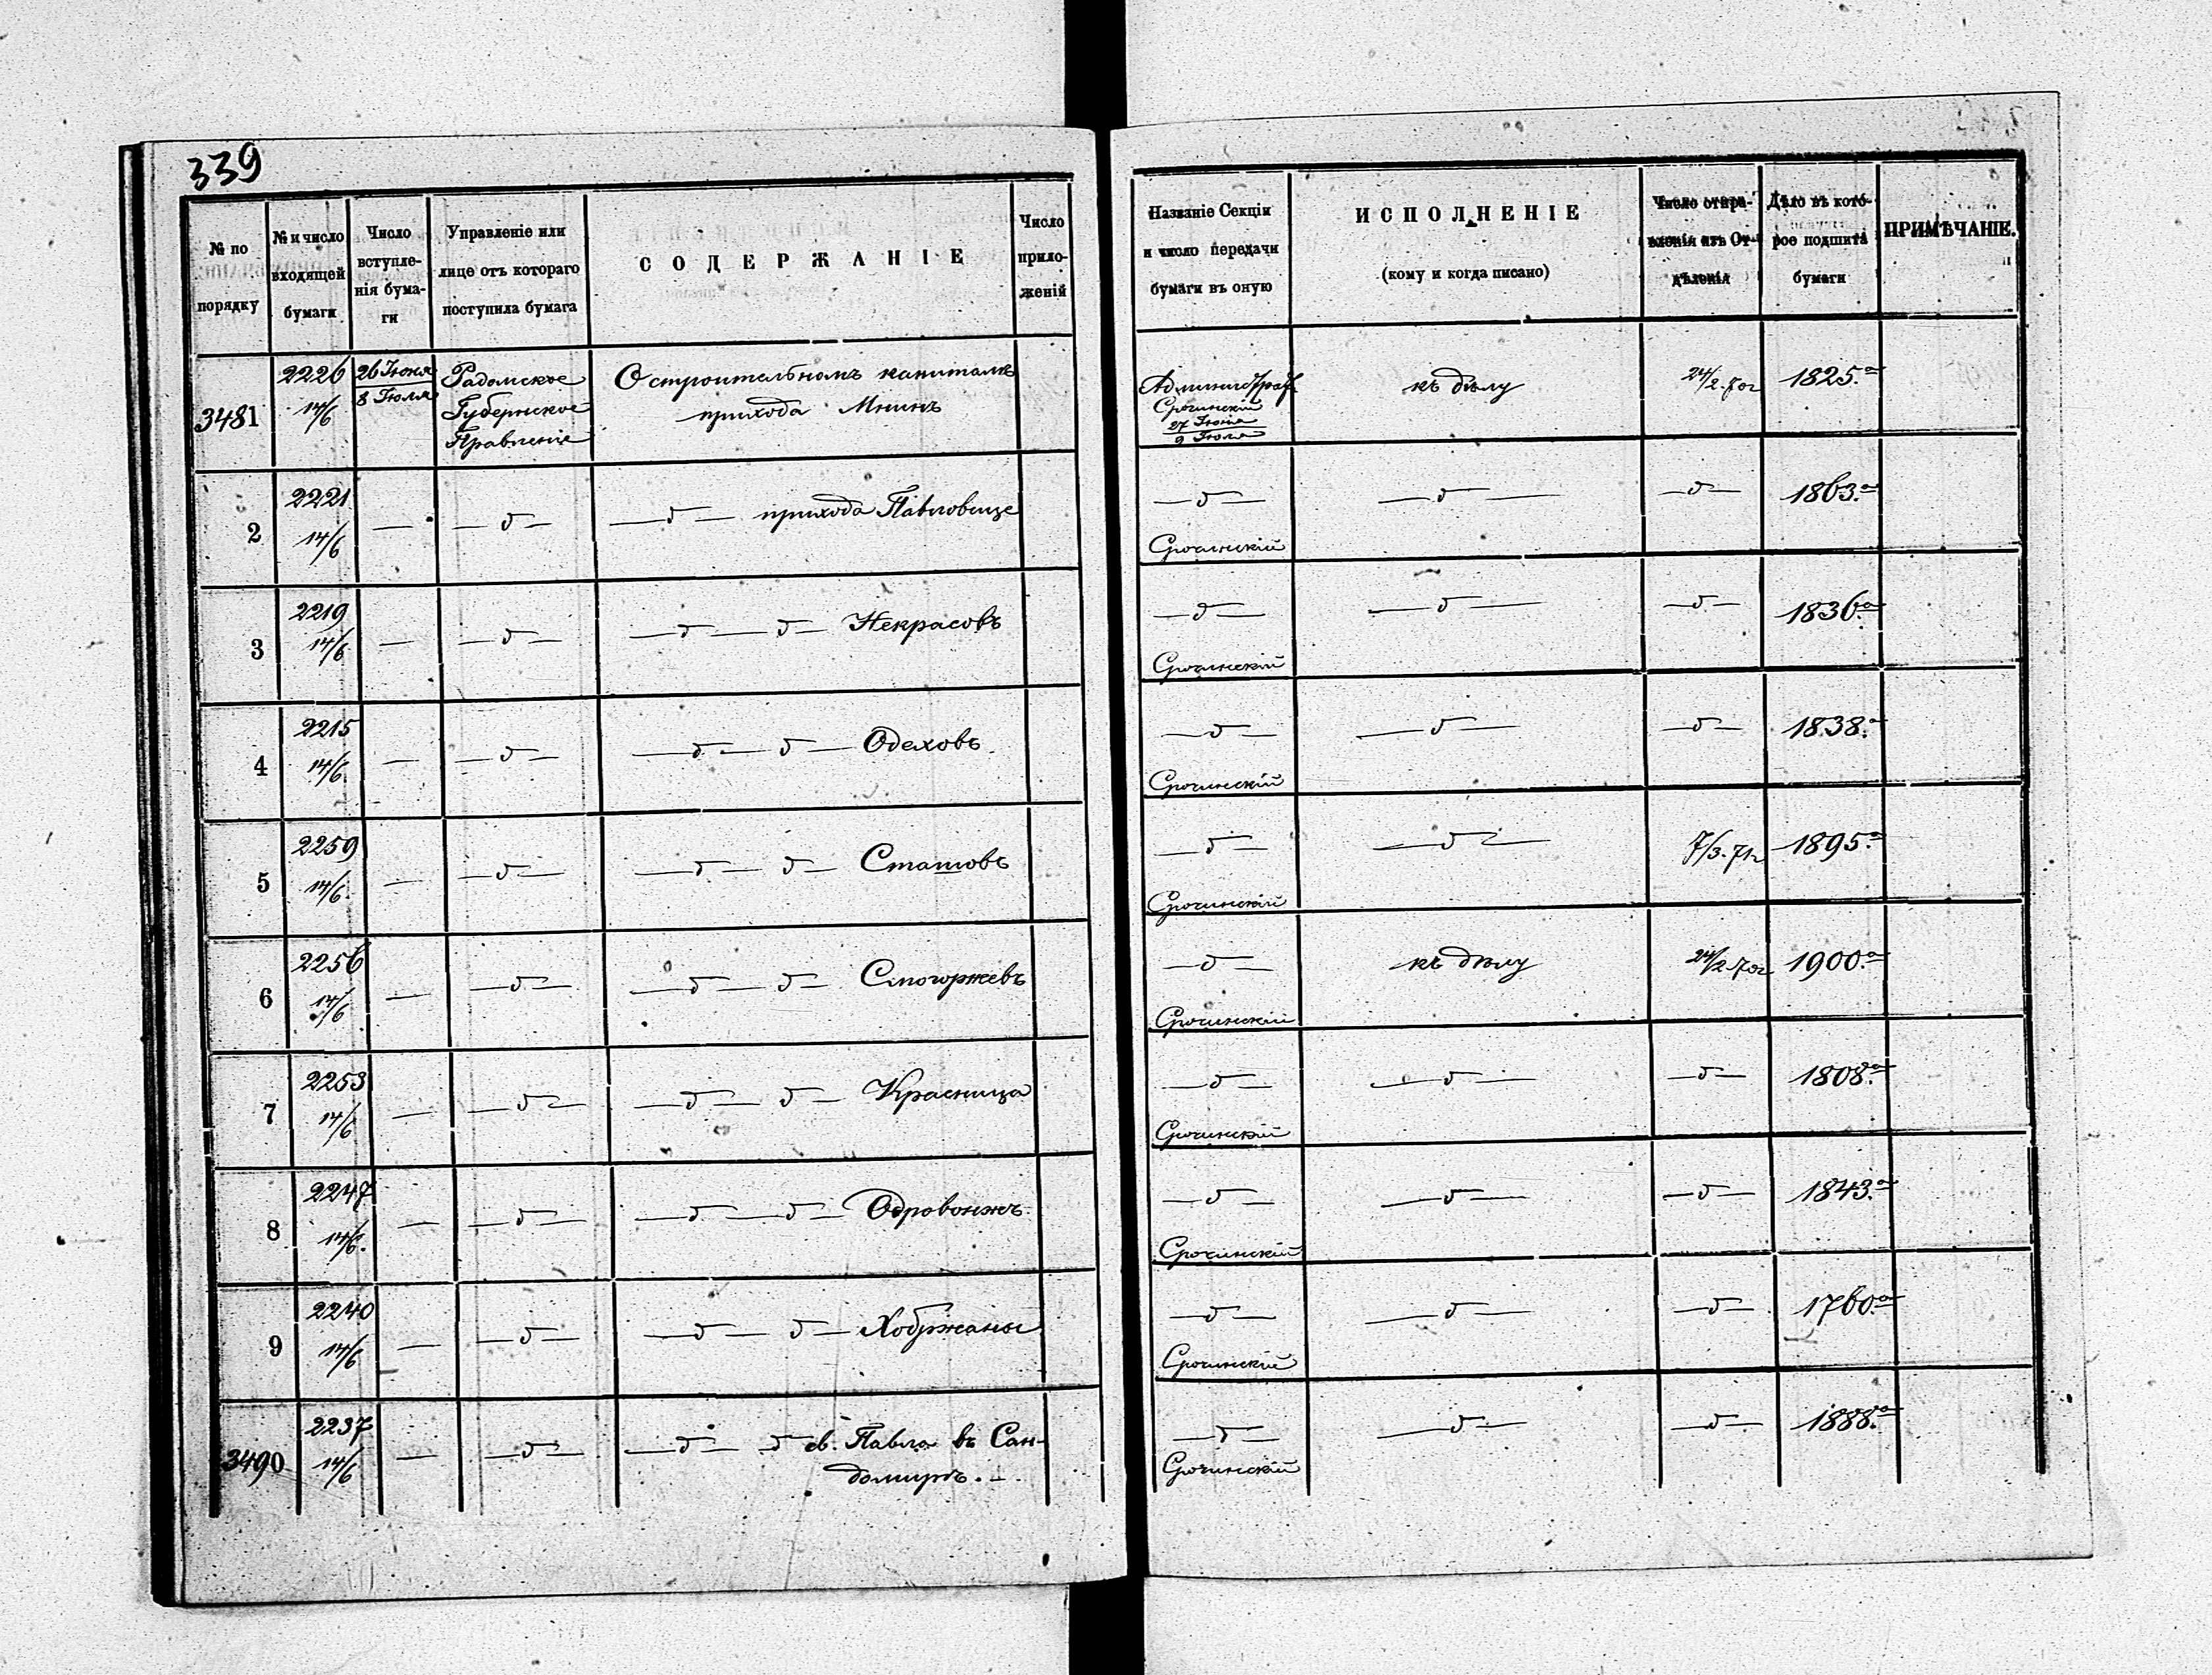 339
№ по порядку
№ и число входящей бумаги
Число вступле-нія бума-ги
Управленіе или лице отъ котораго поступила бумага
СОДЕРЖАНІЕ
Число прило-женій
Названіе Секціи и число передачи бумаги въ оную
ИСПОЛНЕНІЕ (кому и когда писано)
Число отпра-вленія изъ От-дѣленія
Дѣло въ кото-рое подшита бумаги
ПРИМѢЧАНІЕ.
3481 2226 14/6 26 Іюня 8 Іюля Радомское Губернское Правленіе О строительномъ капиталѣ прихода Мнинъ 27 Іюня 9 Іюля къ дѣлу 24/2 70г 1825.а
2 2221 14/6 — —д— —д— прихода Павловице —д— —д— —д— 1863.а
3 2219 14/6 — —д— —д— д— Некрасовъ —д— —д— —д— 1836.а
4 2215 14/6 — —д— —д— д— Одеховъ —д— —д— —д— 1838.а
5 2259 14/6 — —д— —д— д— Сташовъ —д— —д— 7/3.71г 1895.а
6 2256 14/6 — —д— —д— д— Смогоржевъ —д— къ дѣлу 24/2 70г 1900.а
7 2253 14/6 — —д— —д— д— Красница —д— —д— —д— 1808.а
8 2247 14/6 — —д— —д— —д— Одровонжъ —д— —д— —д— 1843.а
9 2240 14/6 — —д— —д— д— Хобржаны —д— —д— —д— 1760.а
3490 2237 14/6 — —д— —д— д св. Павла въ Сан-домирѣ. — —д— —д— —д— 1888.а